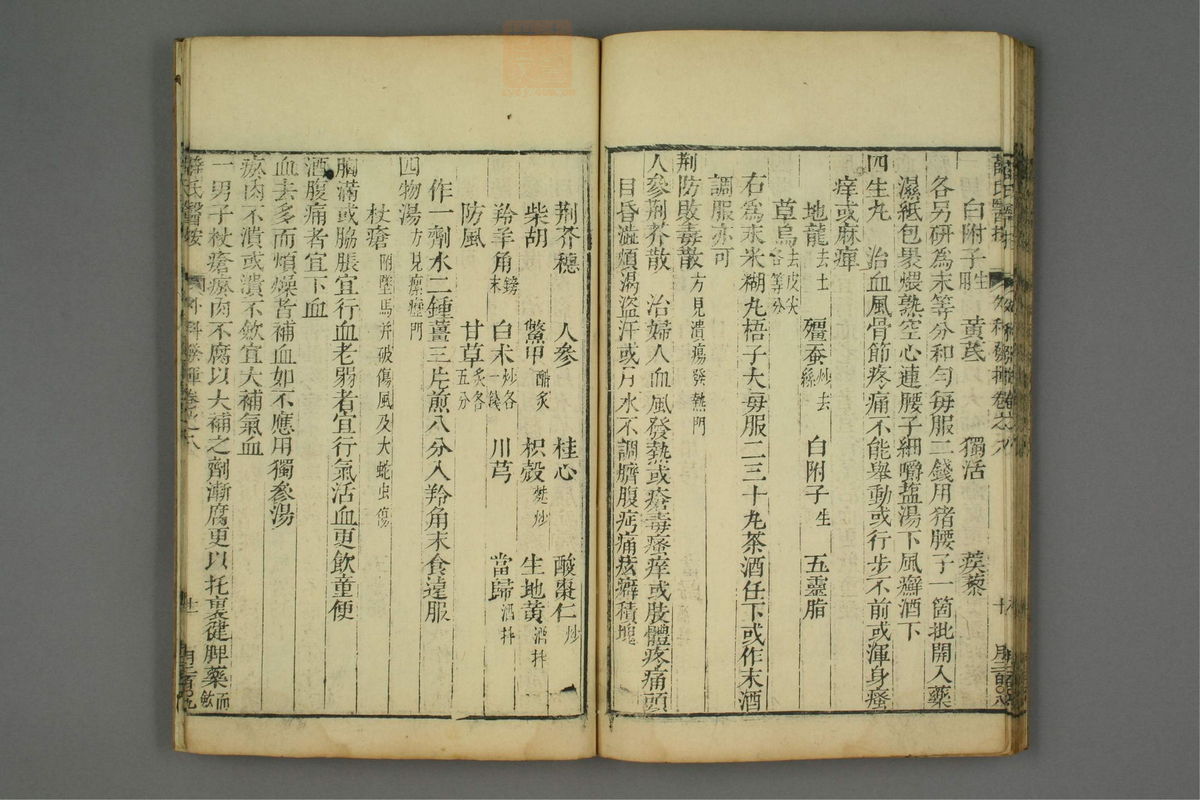 白附子生 黃芪 獨活 蒺藜
各另研為末等分和勻每服二錢用猪腰子一箇批開入藥
濕紙包裹煨熟空心連腰子細嚼塩湯下風癬酒下
四生丸 治血風骨節疼痛不能舉動或行步不前或渾身瘙
痒或麻痺
地龍去土 殭蚕炒去絲 白附子生 五靈脂
草烏去皮尖各等分
右為末米糊丸梧子大每服二三十丸茶酒任下或作末酒
調服亦可
荆防敗毒散方見潰瘍發熱門
人參荆芥散 治婦人血風發熱或瘡毒瘙痒或肢體疼痛頭
目昏澁煩渴盜汗或月水不調臍腹疞痛痃癖積塊
荆芥穗 人參 桂心 酸棗仁炒
柴胡 鱉甲醋炙 枳殼麩炒 生地黃酒拌
羚羊角鎊末 白朮炒各一錢 川芎 當歸酒拌
防風 甘草炙各五分
作一劑水二鍾薑三片煎八分入羚角末食遠服
四物湯方見瘰癧門
杖瘡附墜馬并破傷風及大蛇虫傷
胸滿或脇脹宜行血老弱者宜行氣活血更飲童便
酒腹痛者宜下血
血去多而煩燥者補血如不應用獨參湯
瘀肉不潰或潰不斂宜大補氣血
一男子杖瘡瘀肉不腐以大補之劑漸腐更以托裏健脾藥而斂
薛氏醫按 外科發揮卷之八